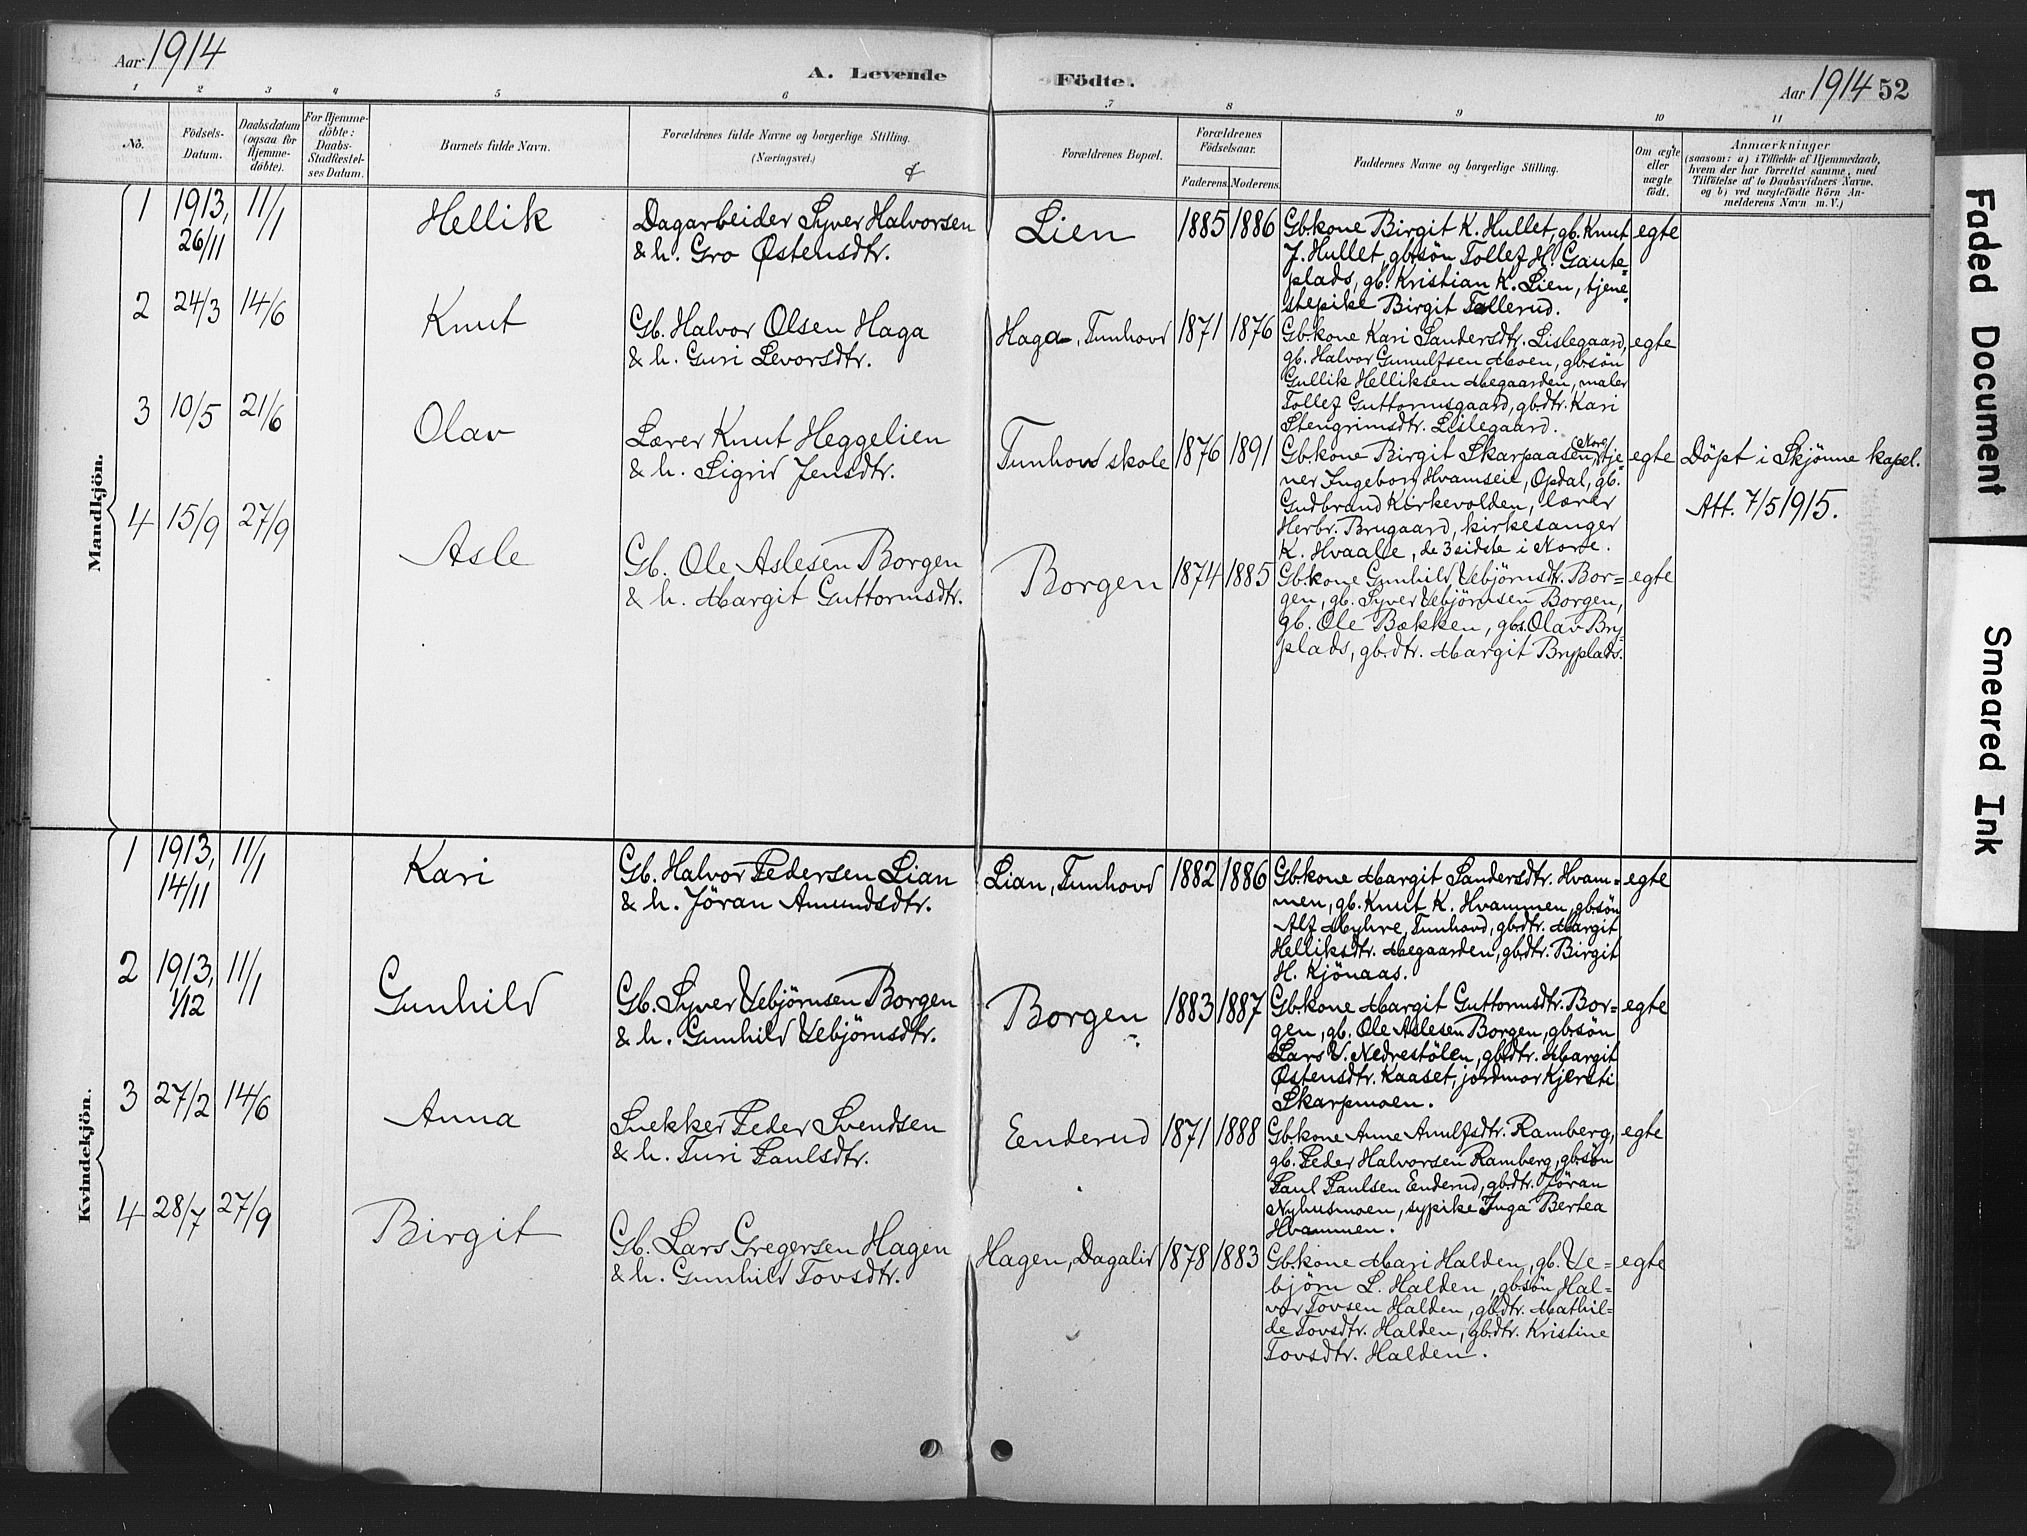 Aar 1914
A. Levende
Födte.
Aar 1914 52
1 2 3 4 5 6 7 8 9 10 11
No.
Födsels-
Datum.
Daabsdatum
(ogsaa for
Hjemme-
döbte).
For Hjemme-
döbte:
Daabs-
Stadfæstel-
ses Datum.
Barnets fulde Navn.
Forældrenes fulde Navne og borgerlige Stilling.
(Næringsvei.)
Forældrenes Bopæl.
Forældrenes
Födselsaar.
Faderens. Moderens.
Faddernes Navne og borgerlige Stilling.
Om ægte
eller
uægte
födt.
Anmærkninger
(saasom: a) i Tilfælde af Hjemmedaab,
hvem der har forrettet samme, med
Tilföielse af to Daabsvidners Navne,
og b) ved uægtefödte Börn An-
melderens Navn m. V.)
Mandkjön.
1
1913,
26/11
11/1
Hellik
Dagarbeider Syver Halvorsen
& h. Gro Østensdtr.
Lien
1885 1886
Gb.kone Birgit K. Hullet, gb. Knut
J. Hullet, gb.søn Tollef H. Gaute=
plads, gb. Kristian K. Lien, tjene=
stepike Birgit Tollerud.
egte
2
24/3
14/6
Knut
Gb. Halvor Olsen Haga
& h. Guri Levorsdtr.
Haga, Tunhovd
1871 1876
Gb.kone Kari Sandersdtr. Lislegaard,
gb. Halvor Gunulfsen Moen, gb.søn
Gullik Helliksen Megaarden, maler
Tollef Guttormsgaard, gb.dtr. Kari
Stengrimsdtr. Lislegaard.
egte
3
10/5
21/6
Olav
Lærer Knut Heggelien
& h. Sigrid Jensdtr.
Tunhovd skole
1876 1891
Gb.kone Birgit Skarpaasen, (Nore) tje
ner Ingeborg Hvamseie, Opdal, gb.
Gudbrand Kirkevolden, lærer
Herbr. Brugaard, kirkesanger
K. Hvaale, de 3 sidste i Nore.
egte
Döpt i Skjönne kapel.
Att. 7/5 1915.
4
15/9
27/9
Asle
Gb. Ole Aslesen Borgen
& h. Margit Guttormsdtr.
Borgen
1874 1885
Gb.kone Gunhild Vebjörnsdtr. Bor=
gen, gb. Syver Vebjörnsen Borgen,
gb. Ole Bækken, gbs. Olav Bry=
plads, gb.dtr. Margit Bryplads.
egte
Kvindekjön.
1
1913,
14/11
11/1
Kari
Gb. Halvor Pedersen Lian
& h. Jöran Amundsdtr.
Lian, Tunhovd
1882 1886
Gb.kone Margit Sandersdtr. Hvam=
men, gb. Knut K. Hvammen, gb.søn
Alf Myhre, Tunhovd, gb.dtr. Margit
Helliksdtr. Megaarden, gb.dtr. Birgit
H. Kjönaas.
egte
2
1913,
1/12
11/1
Gunhild
Gb. Syver Vebjörnsen Borgen
& h. Gunhild Vebjörnsdtr.
Borgen
1883 1887
Gb.kone Margit Guttormsdtr. Bor=
gen, gb. Ole Aslesen Borgen, gb.søn
Lars V. Nedrestölen, gb.dtr. Margit
Østensdtr. Kaaset, jordmor Kjersti
Skarpmoen.
egte
3
27/2
14/6
Anna
Snekker Peder Svendsen
& h. Turi Paulsdtr.
Eenderud
1871 1888
Gb.kone Anne Arnulfsdtr. Ramberg,
gb. Peder Halvorsen Ramberg, gb.søn
Paul Paulsen Eenderud, gb.dtr. Jöran
Nyhusmoen, sypike Inga Bertea
Hvammen.
egte
4
28/7
27/9
Birgit
Gb. Lars Gregersen Hagen
& h. Gunhild Tovsdtr.
Hagen, Dagalid
1878 1883
Gb.kone Mari Halden, gb. Ve=
björn L. Halden, gb.søn Hal=
vor Tovsen Halden, gb.dtr. Mathil=
de Tovsdtr. Halden, gb.dtr. Kristine
Tovsdtr. Halden.
egte
Faded Document
Smeared Ink